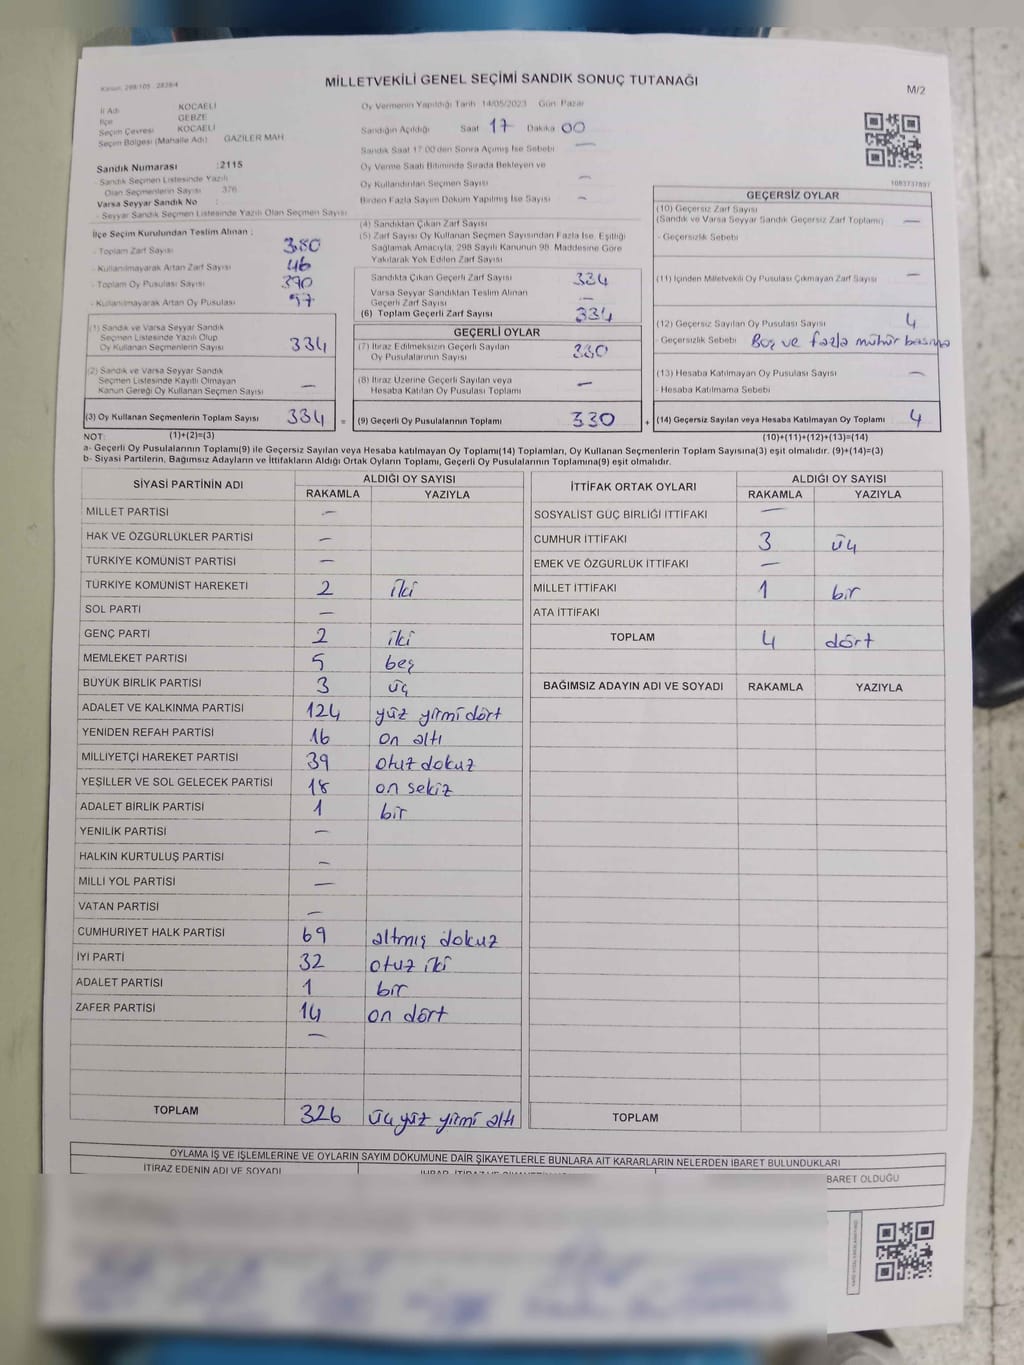 MİLLETVEKİLİ GENEL SEÇİMİ SANDIK SONUÇ TUTANAĞI
M/2
İl Adı KOCAELİ
İlçe GEBZE
Seçim Çevresi KOCAELİ
Seçim Bölgesi (Mahalle Adı) GAZİLER MAH
Sandık Numarası :2115
Sandık Seçmen Listesinde Yazılı
Olan Seçmenlerin Sayısı : 376
Varsa Seyyar Sandık No
- Seyyar Sandık Seçmen Listesinde Yazılı Olan Seçmen Sayısı
Oy Vermenin Yapıldığı Tarih 14/05/2023 Gün Pazar
Sandığın Açıldığı Saat 17 Dakika 00
Sandık Saat 17:00'den Sonra Açılmış İse Sebebi —
Oy Verme Saati Bitiminde Sırada Bekleyen ve
Oy Kullandırılan Seçmen Sayısı —
Birden Fazla Sayım Döküm Yapılmış İse Sayısı —
1083737897
İlçe Seçim Kurulundan Teslim Alınan :
- Toplam Zarf Sayısı 380
- Kullanılmayarak Artan Zarf Sayısı 46
- Toplam Oy Pusulası Sayısı 390
- Kullanılmayarak Artan Oy Pusulası
(1) Sandık ve Varsa Seyyar Sandık
Seçmen Listesinde Yazılı Olup
Oy Kullanan Seçmenlerin Sayısı 334
(2) Sandık ve Varsa Seyyar Sandık
Seçmen Listesinde Kayıtlı Olmayan
Kanun Gereği Oy Kullanan Seçmen Sayısı —
(3) Oy Kullanan Seçmenlerin Toplam Sayısı 334 =
(4) Sandıktan Çıkan Zarf Sayısı
(5) Zarf Sayısı Oy Kullanan Seçmen Sayısından Fazla İse, Eşitliği
Sağlamak Amacıyla, 298 Sayılı Kanunun 98. Maddesine Göre
Yakılarak Yok Edilen Zarf Sayısı
Sandıkta Çıkan Geçerli Zarf Sayısı 334
Varsa Seyyar Sandıktan Teslim Alınan
Geçerli Zarf Sayısı —
(6) Toplam Geçerli Zarf Sayısı 334
GEÇERLİ OYLAR
(7) İtiraz Edilmeksizin Geçerli Sayılan
Oy Pusulalarının Sayısı 330
(8) İtiraz Üzerine Geçerli Sayılan veya
Hesaba Katılan Oy Pusulası Toplamı —
(9) Geçerli Oy Pusulalarının Toplamı 330 +
GEÇERSİZ OYLAR
(10) Geçersiz Zarf Sayısı
(Sandık ve Varsa Seyyar Sandık Geçersiz Zarf Toplamı) —
- Geçersizlik Sebebi
(11) İçinden Milletvekili Oy Pusulası Çıkmayan Zarf Sayısı —
(12) Geçersiz Sayılan Oy Pusulası Sayısı 4
Geçersizlik Sebebi Boş ve fazla mühür basma
(13) Hesaba Katılmayan Oy Pusulası Sayısı —
- Hesaba Katılmama Sebebi
(14) Geçersiz Sayılan veya Hesaba Katılmayan Oy Toplamı 4
NOT: (1)+(2)=(3) (10)+(11)+(12)+(13)=(14)
a- Geçerli Oy Pusulalarının Toplamı(9) ile Geçersiz Sayılan veya Hesaba katılmayan Oy Toplamı(14) Toplamları, Oy Kullanan Seçmenlerin Toplam Sayısına(3) eşit olmalıdır. (9)+(14)=(3)
b- Siyasi Partilerin, Bağımsız Adayların ve İttifakların Aldığı Ortak Oyların Toplamı, Geçerli Oy Pusulalarının Toplamına(9) eşit olmalıdır.
SİYASİ PARTİNİN ADI ALDIĞI OY SAYISI
RAKAMLA YAZIYLA
MİLLET PARTİSİ —
HAK VE ÖZGÜRLÜKLER PARTİSİ —
TÜRKİYE KOMÜNİST PARTİSİ —
TÜRKİYE KOMÜNİST HAREKETİ 2 iki
SOL PARTİ —
GENÇ PARTİ 2 iki
MEMLEKET PARTİSİ 5 beş
BÜYÜK BİRLİK PARTİSİ 3 üç
ADALET VE KALKINMA PARTİSİ 124 yüz yirmi dört
YENİDEN REFAH PARTİSİ 16 on altı
MİLLİYETÇİ HAREKET PARTİSİ 39 otuz dokuz
YEŞİLLER VE SOL GELECEK PARTİSİ 18 on sekiz
ADALET BİRLİK PARTİSİ 1 bir
YENİLİK PARTİSİ —
HALKIN KURTULUŞ PARTİSİ —
MİLLİ YOL PARTİSİ —
VATAN PARTİSİ —
CUMHURİYET HALK PARTİSİ 69 altmış dokuz
İYİ PARTİ 32 otuz iki
ADALET PARTİSİ 1 bir
ZAFER PARTİSİ 14 on dört
—
TOPLAM 326 üç yüz yirmi altı
İTTİFAK ORTAK OYLARI ALDIĞI OY SAYISI
RAKAMLA YAZIYLA
SOSYALİST GÜÇ BİRLİĞİ İTTİFAKI —
CUMHUR İTTİFAKI 3 üç
EMEK VE ÖZGÜRLÜK İTTİFAKI —
MİLLET İTTİFAKI 1 bir
ATA İTTİFAKI
TOPLAM 4 dört
BAĞIMSIZ ADAYIN ADI VE SOYADI RAKAMLA YAZIYLA
TOPLAM
OYLAMA İŞ VE İŞLEMLERİNE VE OYLARIN SAYIM DÖKÜMÜNE DAİR ŞİKAYETLERLE BUNLARA AİT KARARLARIN NELERDEN İBARET BULUNDUKLARI
İTİRAZ EDENİN ADI VE SOYADI
BARET OLDUĞU